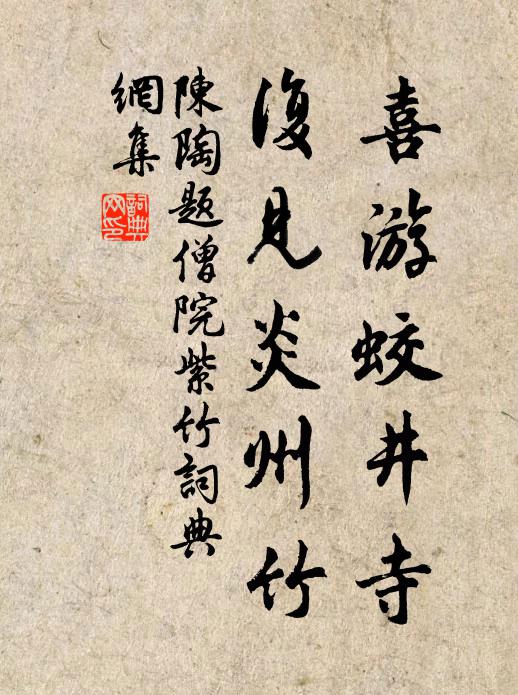 喜游蛟井寺
復見炎州竹
陳陶題僧院紫竹詞典
網集
詞典網印